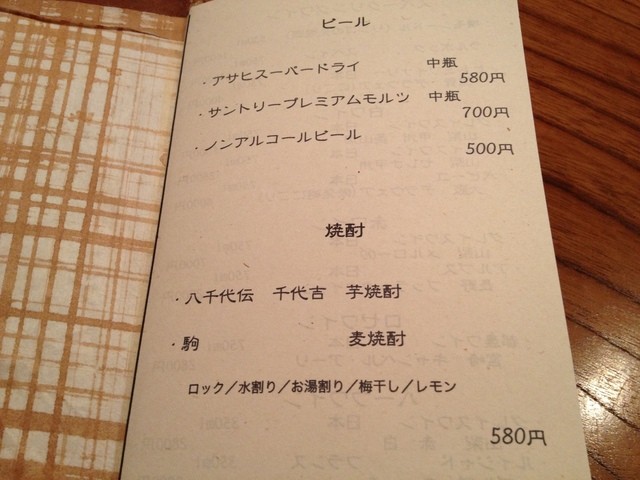 ビール
・アサヒスーパードライ 中瓶
580円
・サントリープレミアムモルツ 中瓶
700円
・ノンアルコールビール
500円
焼酎
・八千代伝 千代吉 芋焼酎
・駒 麦焼酎
ロック／水割り／お湯割り／梅干し／レモン
580円